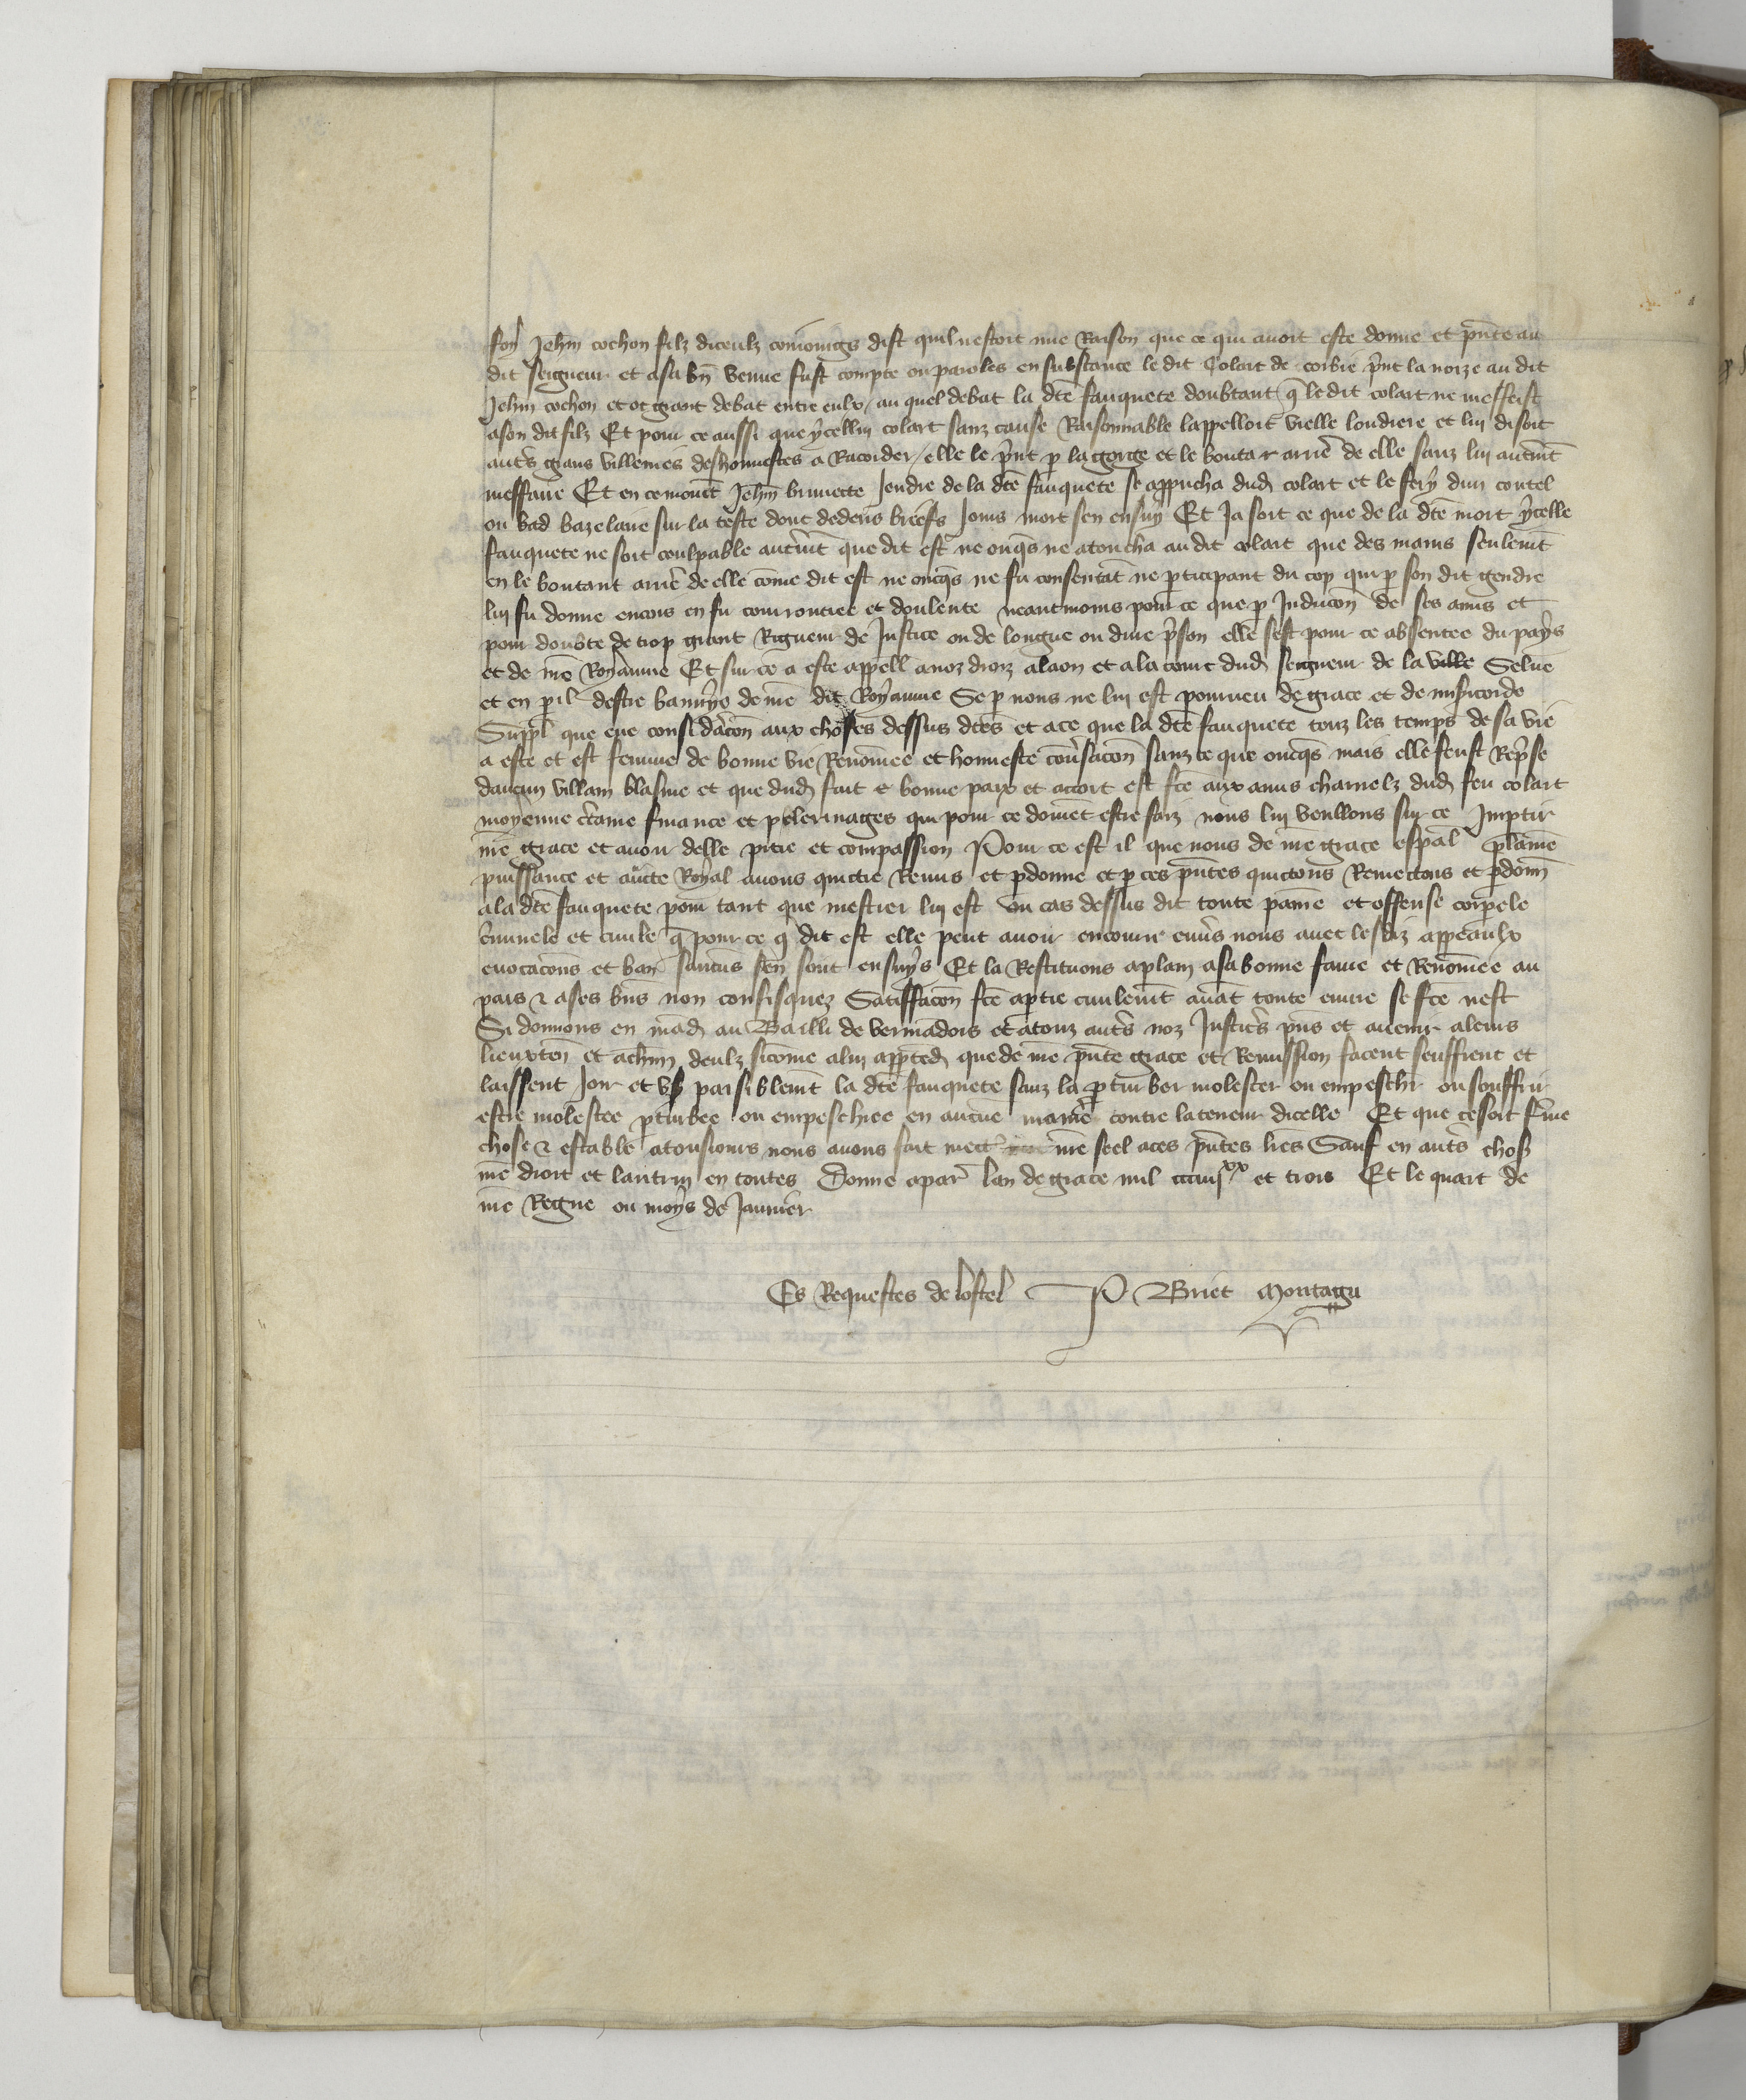 son Jehm cochon filz diceulx conioings dist quil nestoit mie Raison que ce qui auoit este donne et pnte au
dit seigneur et a sa bn venue fust compte ou paroles en substance le dit Colart de corbie print la noize au dit
Jehm cochon et ot grant debat entre eulx / au quel debat la dte fauquete doubtant q le dit colart ne meffeist
a son dit filz Et pour ce aussi que ycellui colart sanz cause Raisonnable lappelloit vielle loudiere et lui disoit
auts grans villenies deshonnestes a Racorder / elle le print p la gorge et le bouta arrie de elle sanz lui autmt
meffaire Et en ce momet Jehm brunette gendre de la dte fauquete se approcha dud colart et le fery dun coutel
ou bad bazelaire sur la teste dont dedens briefs Jours mort sen ensuy Et Ja soit ce que de la dte mort ycelle
fauquete ne soit coulpable autmt que dit est ne onqs ne atoucha au dit colart que des mains seulemt
en le boutant arrie de elle come dit est ne oncqs ne fu consentat ne pticipant du cop qui p son dit gendre
lui fu donne encois en fu courroucee et doulente neantmoins pour ce que p Inducon de ses amis et
pour doubte de trop grant Rigueur de Justice ou de longue ou dure prison elle sest pour ce absentee du pays
et de nre Royaume Et sur ce a este appell a noz droiz a laon et a la court dud seigneur de la ville Selue
et en pil destre bannye de nre dit Royaume Se p nous ne lui est pourueu de grace et de misicorde
Suppl que eue considacon aux choses dessus dtes et a ce que la dte fauquete touz les temps de sa vie
a este et est femme de bonne vie Renomee et honneste conusacon sanz ce que oncqs mais elle feust Reprse
daucun villain blasme et que dud fait & bonne paix et accort est fte aux amis charnelz dud feu colart
moyenne ctaine finance et pelerinages qui pour ce doiuet estre faiz nous lui veullons sur ce Imptir
nre grace et auoir delle pitie et compassion Pour ce est il que nous de nre grace espal plaine
puissance et aucte Royal auons quictie Remis et pdonne et p ces pntes quictons Remectons et pdonn
a la dte fauquete pour tant que mestier lui est ou cas dessus dit toute paine et offense corpele
criminele et ciuile q pour ce q dit est elle peut auoir encouru enuers nous auec lesdiz appeaulx
euocacons et ban saucus sen sont ensuys Et la Restituons a plain a sa bonne fame et Renomee au
pais & a ses bns non confisquez Satiffacon fte a ptie ciuilemt auat toute euure se fte nest
Si donnons en mad au Bailli de vermadois et a touz auts noz Justicrs pns et auenir a leurs
lieuxten et a chun deulz sicome a lui appted que de nre pnte grace et Remission facent seuffrent et
laissent Joir et vs paisiblemt la dte fauquete sanz la pturber molester ou empeschr ou souffrir
estre molestee pturbee ou empeschiee en aucune manie contre la teneur dicelle Et que ce soit ferme
chose & estable a tousiours nous auons fait mett nre seel a ces pntes lres Sauf en auts chos
nre droit et lautrui en toutes Donne a par lan de grace mil ccciiij xx et trois Et le quart de
nre Regne ou moys de Januier
Es Requestes de lostel P Briet Montagu